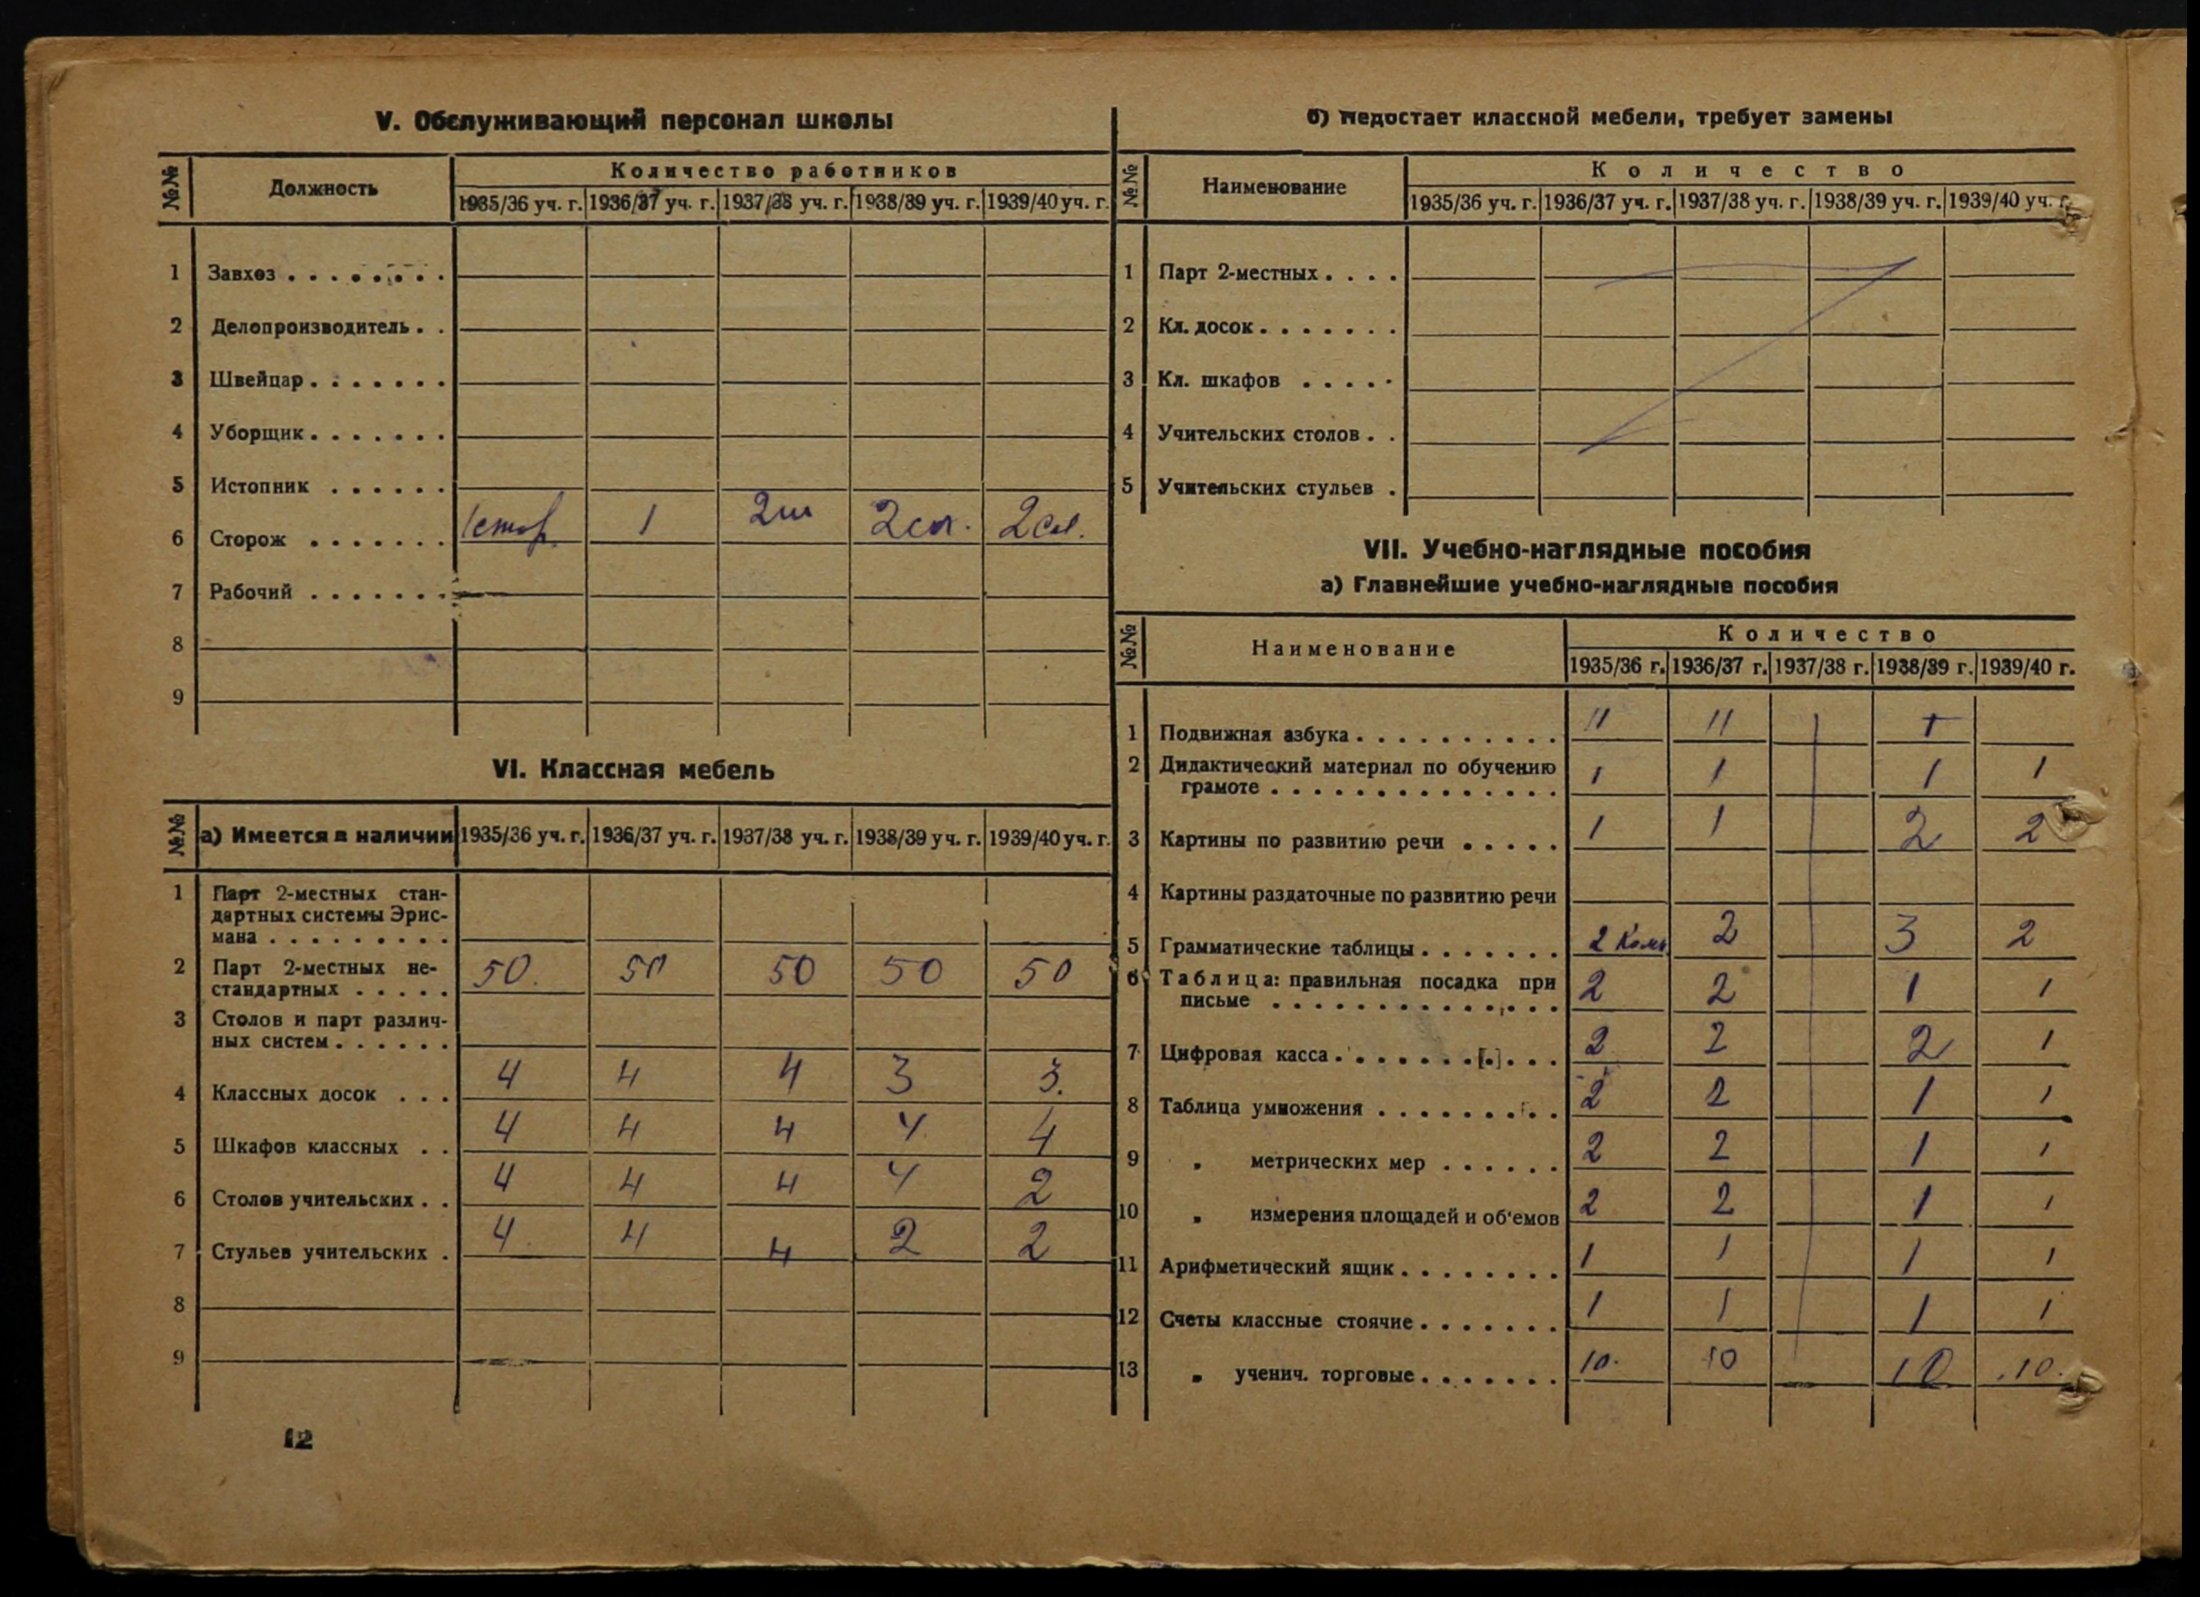 V. Обслуживающий персонал школы
№№ Должность Количество работников
1935/36 уч. г. 1936/37 уч. г. 1937/38 уч. г. 1938/39 уч. г. 1939/40 уч. г.
1 Завхоз . . . . . . . .
2 Делопроизводитель . .
3 Швейцар . . . . . . .
4 Уборщик . . . . . . .
5 Истопник . . . . . .
6 Сторож . . . . . . . 1 стор. 1 2 2 2
7 Рабочий . . . . . . .
8
9
VI. Классная мебель
№№ а) Имеется в наличии 1935/36 уч. г. 1936/37 уч. г. 1937/38 уч. г. 1938/39 уч. г. 1939/40 уч. г.
1 Парт 2-местных стан-
дартных системы Эрис-
мана . . . . . . . . .
2 Парт 2-местных не-
стандартных . . . . . 50. 50 50 50 50
3 Столов и парт различ-
ных систем . . . . . .
4 Классных досок . . . 4 4 4 3 3.
5 Шкафов классных . . 4 4 4 4 4
6 Столов учительских . . 4 4 4 4 2
7 Стульев учительских . 4 4 4 2 2
8
9
12
б) Недостает классной мебели, требует замены
№№ Наименование Количество
1935/36 уч. г. 1936/37 уч. г. 1937/38 уч. г. 1938/39 уч. г. 1939/40 уч. г.
1 Парт 2-местных . . . .
2 Кл. досок . . . . . . .
3 Кл. шкафов . . . . .
4 Учительских столов . .
5 Учительских стульев .
VII. Учебно-наглядные пособия
а) Главнейшие учебно-наглядные пособия
№№ Наименование Количество
1935/36 г. 1936/37 г. 1937/38 г. 1938/39 г. 1939/40 г.
1 Подвижная азбука . . . . . . . . . . 11 11
2 Дидактический материал по обучению
грамоте . . . . . . . . . . . . . . 1 1 1 1
3 Картины по развитию речи . . . . . 1 1 2 2
4 Картины раздаточные по развитию речи
5 Грамматические таблицы . . . . . . . 2 Комп 2 3 2
6 Таблица: правильная посадка при
письме . . . . . . . . . . . . . . 2 2 1 1
7 Цифровая касса . . . . . . . [.] . . . 2 2 2 1
8 Таблица умножения . . . . . . . . . 2 2 1 1
9 „ метрических мер . . . . . . 2 2 1 1
10 „ измерения площадей и об'емов 2 2 1 1
11 Арифметический ящик . . . . . . . . 1 1 1 1
12 Счеты классные стоячие . . . . . . . 1 1 1 1
13 „ ученич. торговые . . . . . . . 10. 10 10 10.